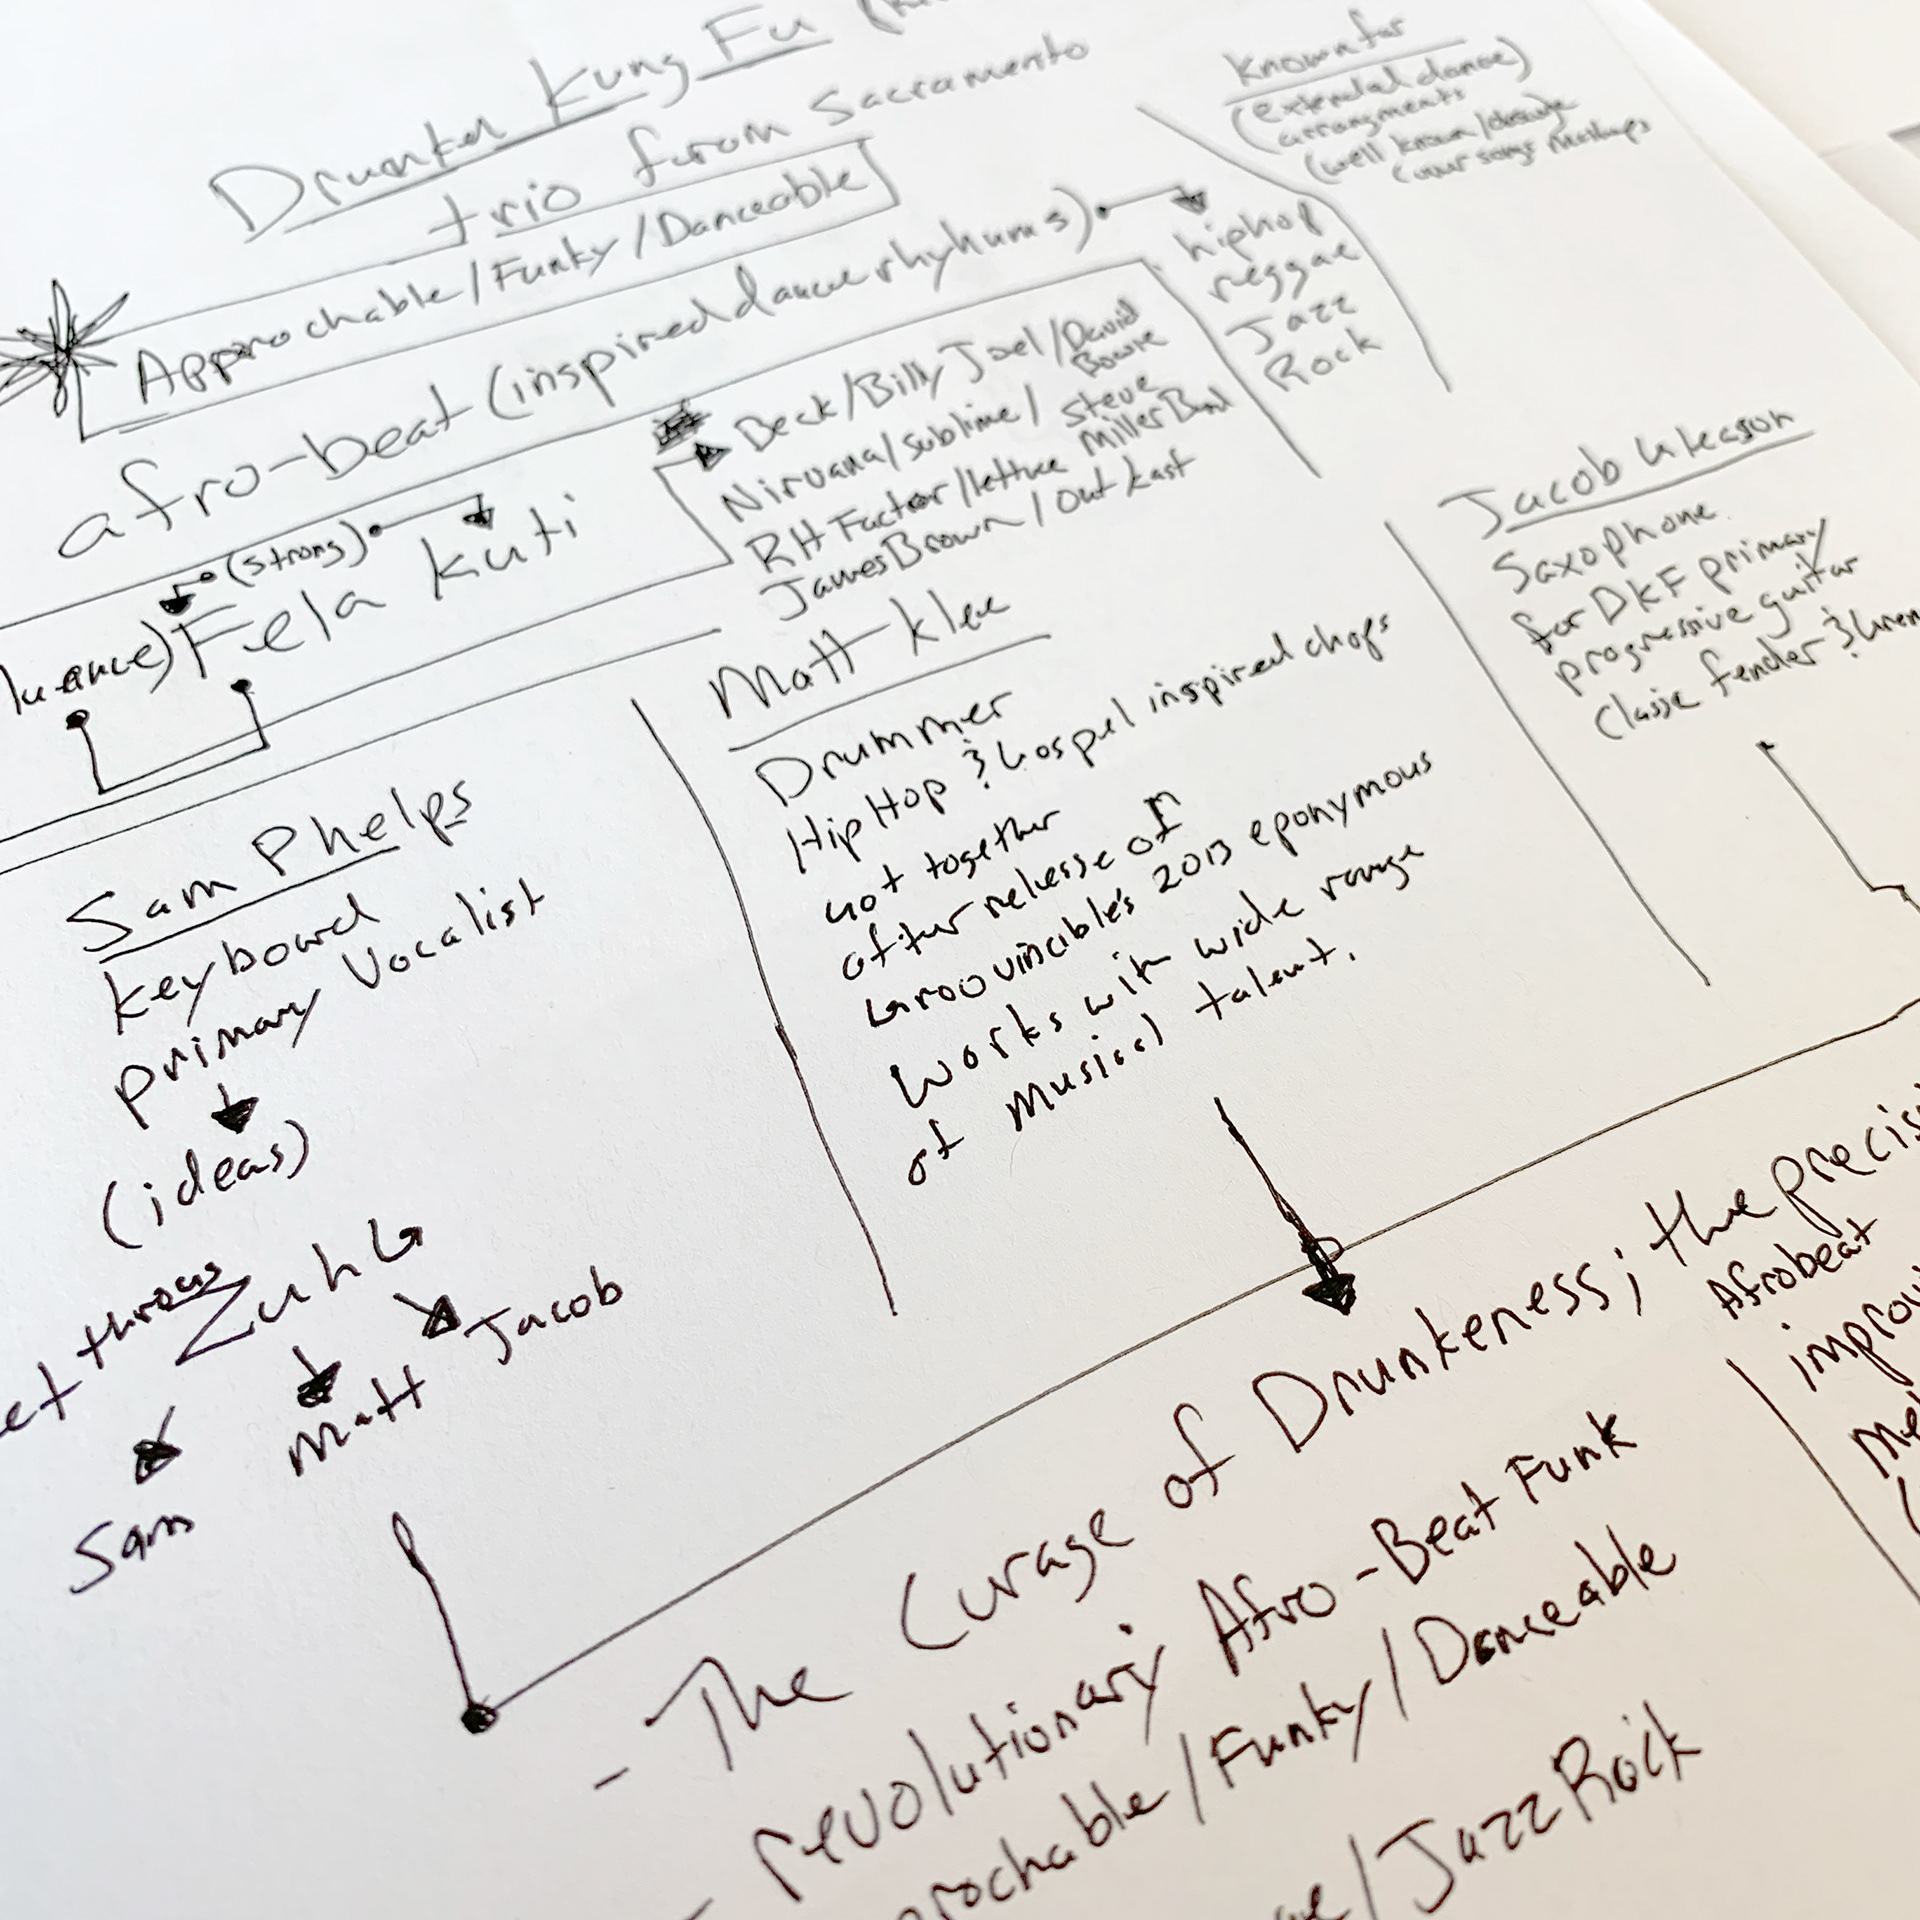 Drunken Kung Fu
trio from Sacramento
Approchable/Funky/Danceable
afro-beat (inspired dance rhyhums)
known for
(extended dance)
arrangments
(well known/
cover songs mashups
hiphop
reggae
Jazz
Rock
(strong)
Fela Kuti
Beck/Billy Joel/David Bowie
Nirvana/Sublime/Steve Miller Band
RH Factor/lettuce
James Brown/Outkast
Sam Phelps
keyboard
primary Vocalist
(ideas)
ZuhG
Sam
Matt
Jacob
Matt Klee
Drummer
Hip Hop & Gospel inspired chops
got together
after relesse of
Groovincible's 2013 eponymous
works with wide range
of musical talent.
Jacob Gleason
Saxophone
for DKF primary
progressive guitar
Classic fender &
- The Curage of Drunkeness; the
Afrobeat
revolutionary Afro-Beat Funk
/Funky/Danceable
/Jazz Rock